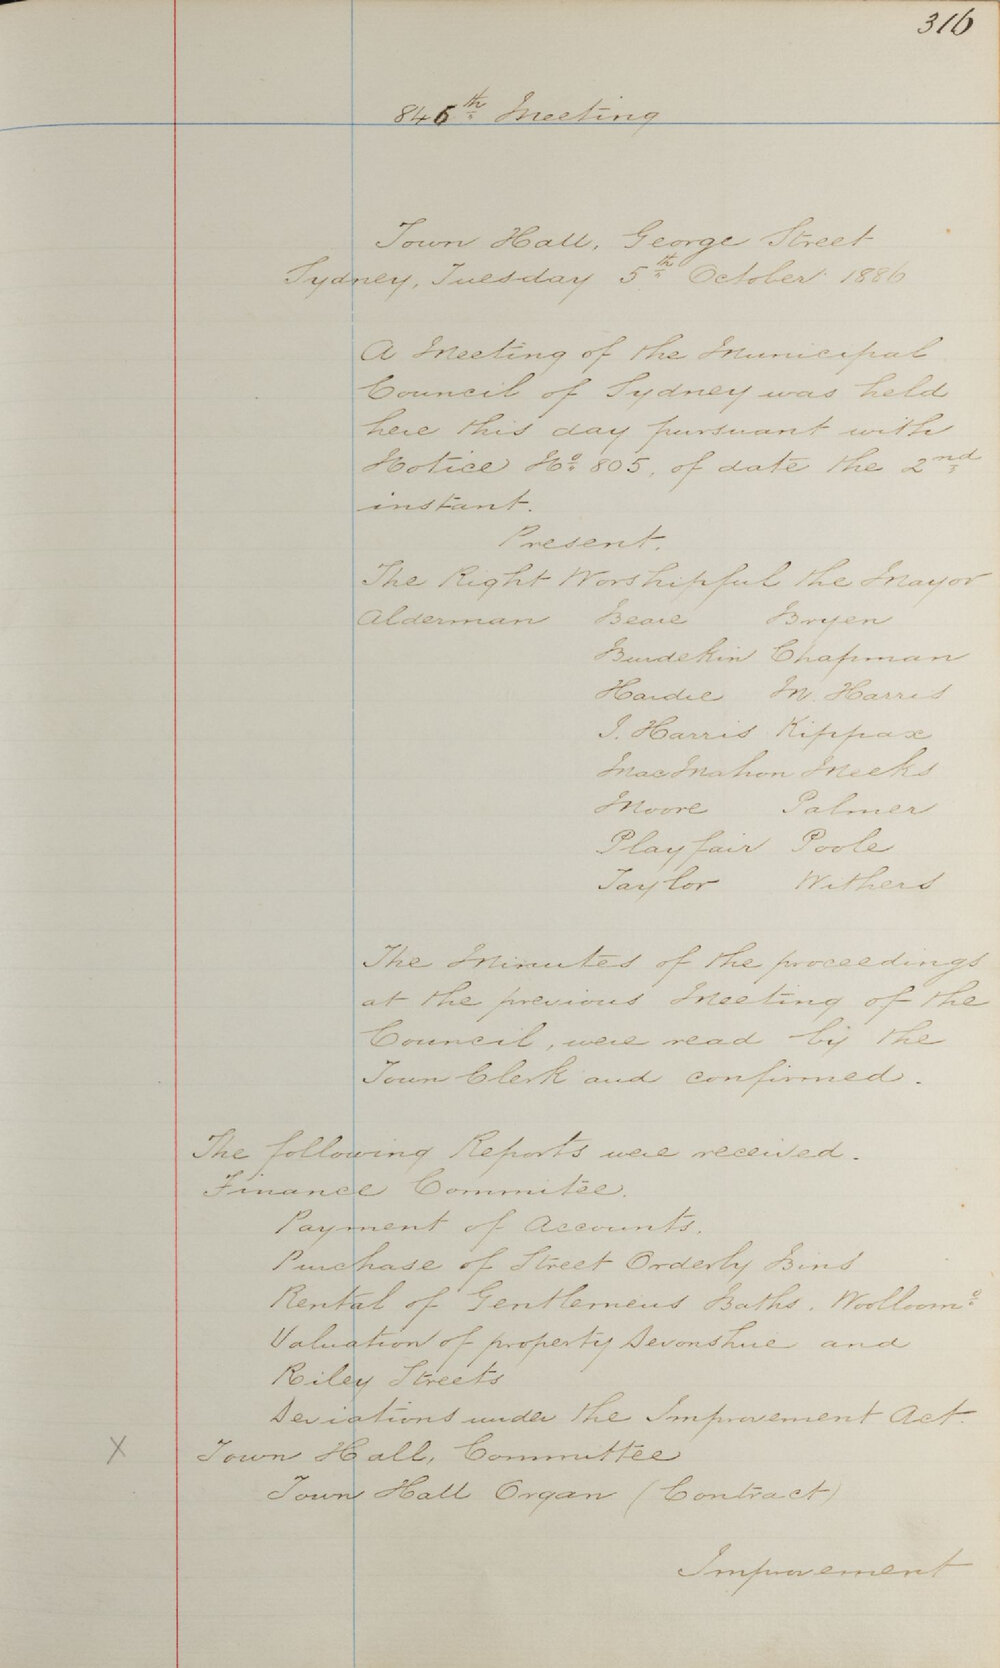 316
846th Meeting
Town Hall, George Street
Sydney, Tuesday 5th October 1886
A Meeting of the Municipal
Council of Sydney was held
here this day pursuant with
Notice No. 805, of date the 2nd
instant.
Present.
The Right Worshipful the Mayor
Alderman Beare Bryen
Burdekin Chapman
Hardie M. Harris
J. Harris Kippax
MacMahon Meeks
Moore Palmer
Playfair Poole
Taylor Withers
The Minutes of the proceedings
at the previous Meeting of the
Council, were read by the
Town Clerk and confirmed.
The following Reports were received.
Finance Commitee.
Payment of Accounts.
Purchase of Street Orderly Bins
Rental of Gentlemens Baths. Woolloomo.
Valuation of property Devonshire and
Riley Streets
Deviations under the Improvement Act.
X Town Hall, Committee
Town Hall Organ (Contract)
Improvement